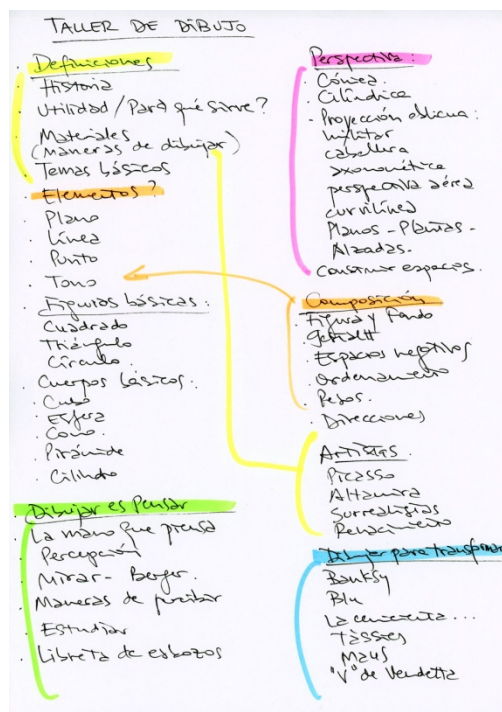 TALLER DE DIBUJO
Definiciones
. Historia
. Utilidad / Para qué sirve?
. Materiales
(maneras de dibujar)
. Temas básicos
. Elementos?
. Plano
. Línea
. Punto
. Tono
. Figuras básicas:
. Cuadrado
. Triángulo
. Círculo
. Cuerpos básicos:
. Cubo
. Esfera
. Cono
. Pirámide
. Cilindro
Dibujar es Pensar
. La mano que piensa
. Percepción
. Mirar - Berger.
. Maneras de percibir
. Estudiar
. Libreta de esbozos
Perspectiva:
. Cónica
. Cilíndrica
- Proyección oblicua:
militar
caballera
axonométrica
perspectiva aérea
curvilínea
Planos - Plantas -
Alzadas.
. Construir espacios.
Composición
. Figura y Fondo
. Gestalt
. Espacios negativos
. Ordenamiento
. Pesos.
. Direcciones
Artistas.
Picasso
Altamira
Surrealistas
Renacimiento
Dibujar para transformar
Banksy
Blu
La cenicienta...
Tàssies
Maus
"V" de Vendetta